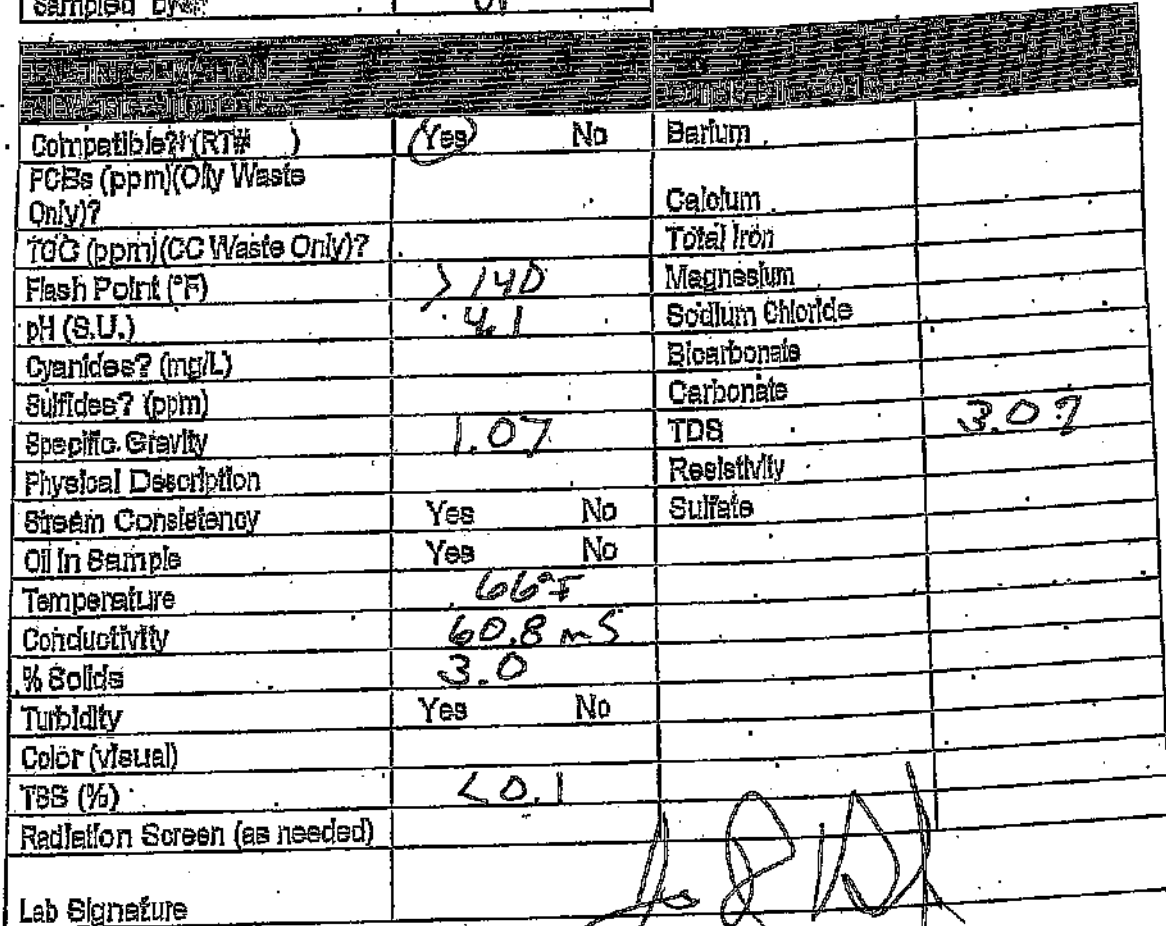 Sampled By#
Compatible? (RT# ) Yes No Barium
PCBs (ppm)(Oily Waste
Only)? Calcium
TOC (ppm)(CC Waste Only)? Total Iron
Flash Point (°F) >140 Magnesium
pH (S.U.) 4.1 Sodium Chloride
Cyanides? (mg/L) Bicarbonate
Sulfides? (ppm) Carbonate
Specific Gravity 1.07 TDS 3.0
Physical Description Resistivity
Stream Consistency Yes No Sulfate
Oil In Sample Yes No
Temperature 66°F
Conductivity 60.8 mS
% Solids 3.0
Turbidity Yes No
Color (visual)
TSS (%) <0.1
Radiation Screen (as needed)
Lab Signature